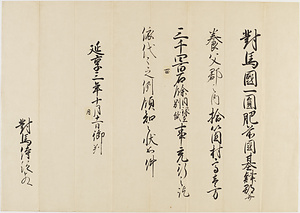 對馬國一圓肥前國基肄郡
養父郡之内拾箇村高壹万
三千四百石餘目録在別紙事充行之訖
依代々之例領知之状如件
延享三年十月十一日御判
對馬侍従